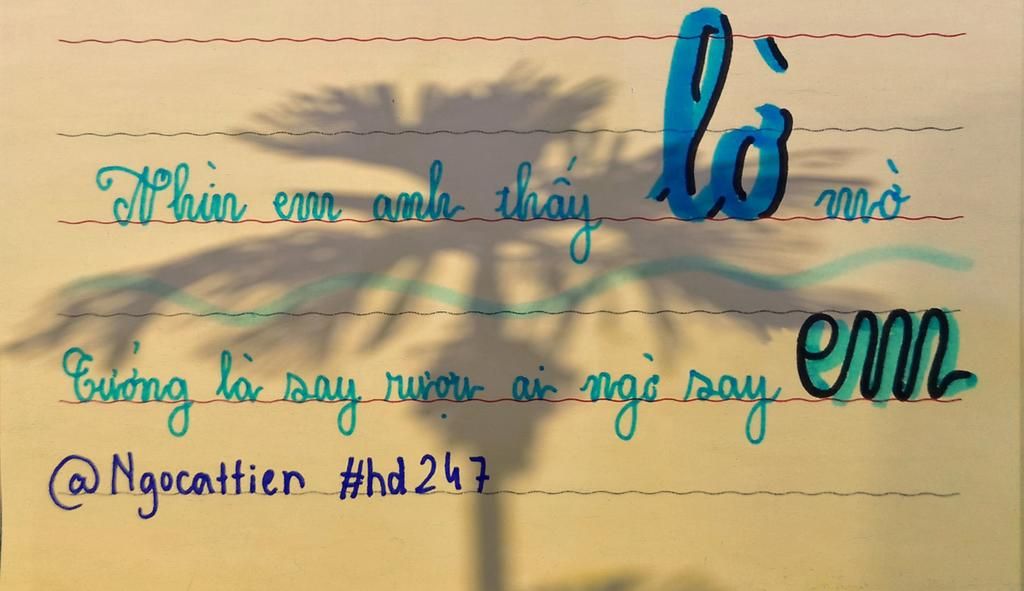 Nhìn em anh thấy lờ mờ
Tưởng là say rượu ai ngờ say em
@Ngocattien #hd247